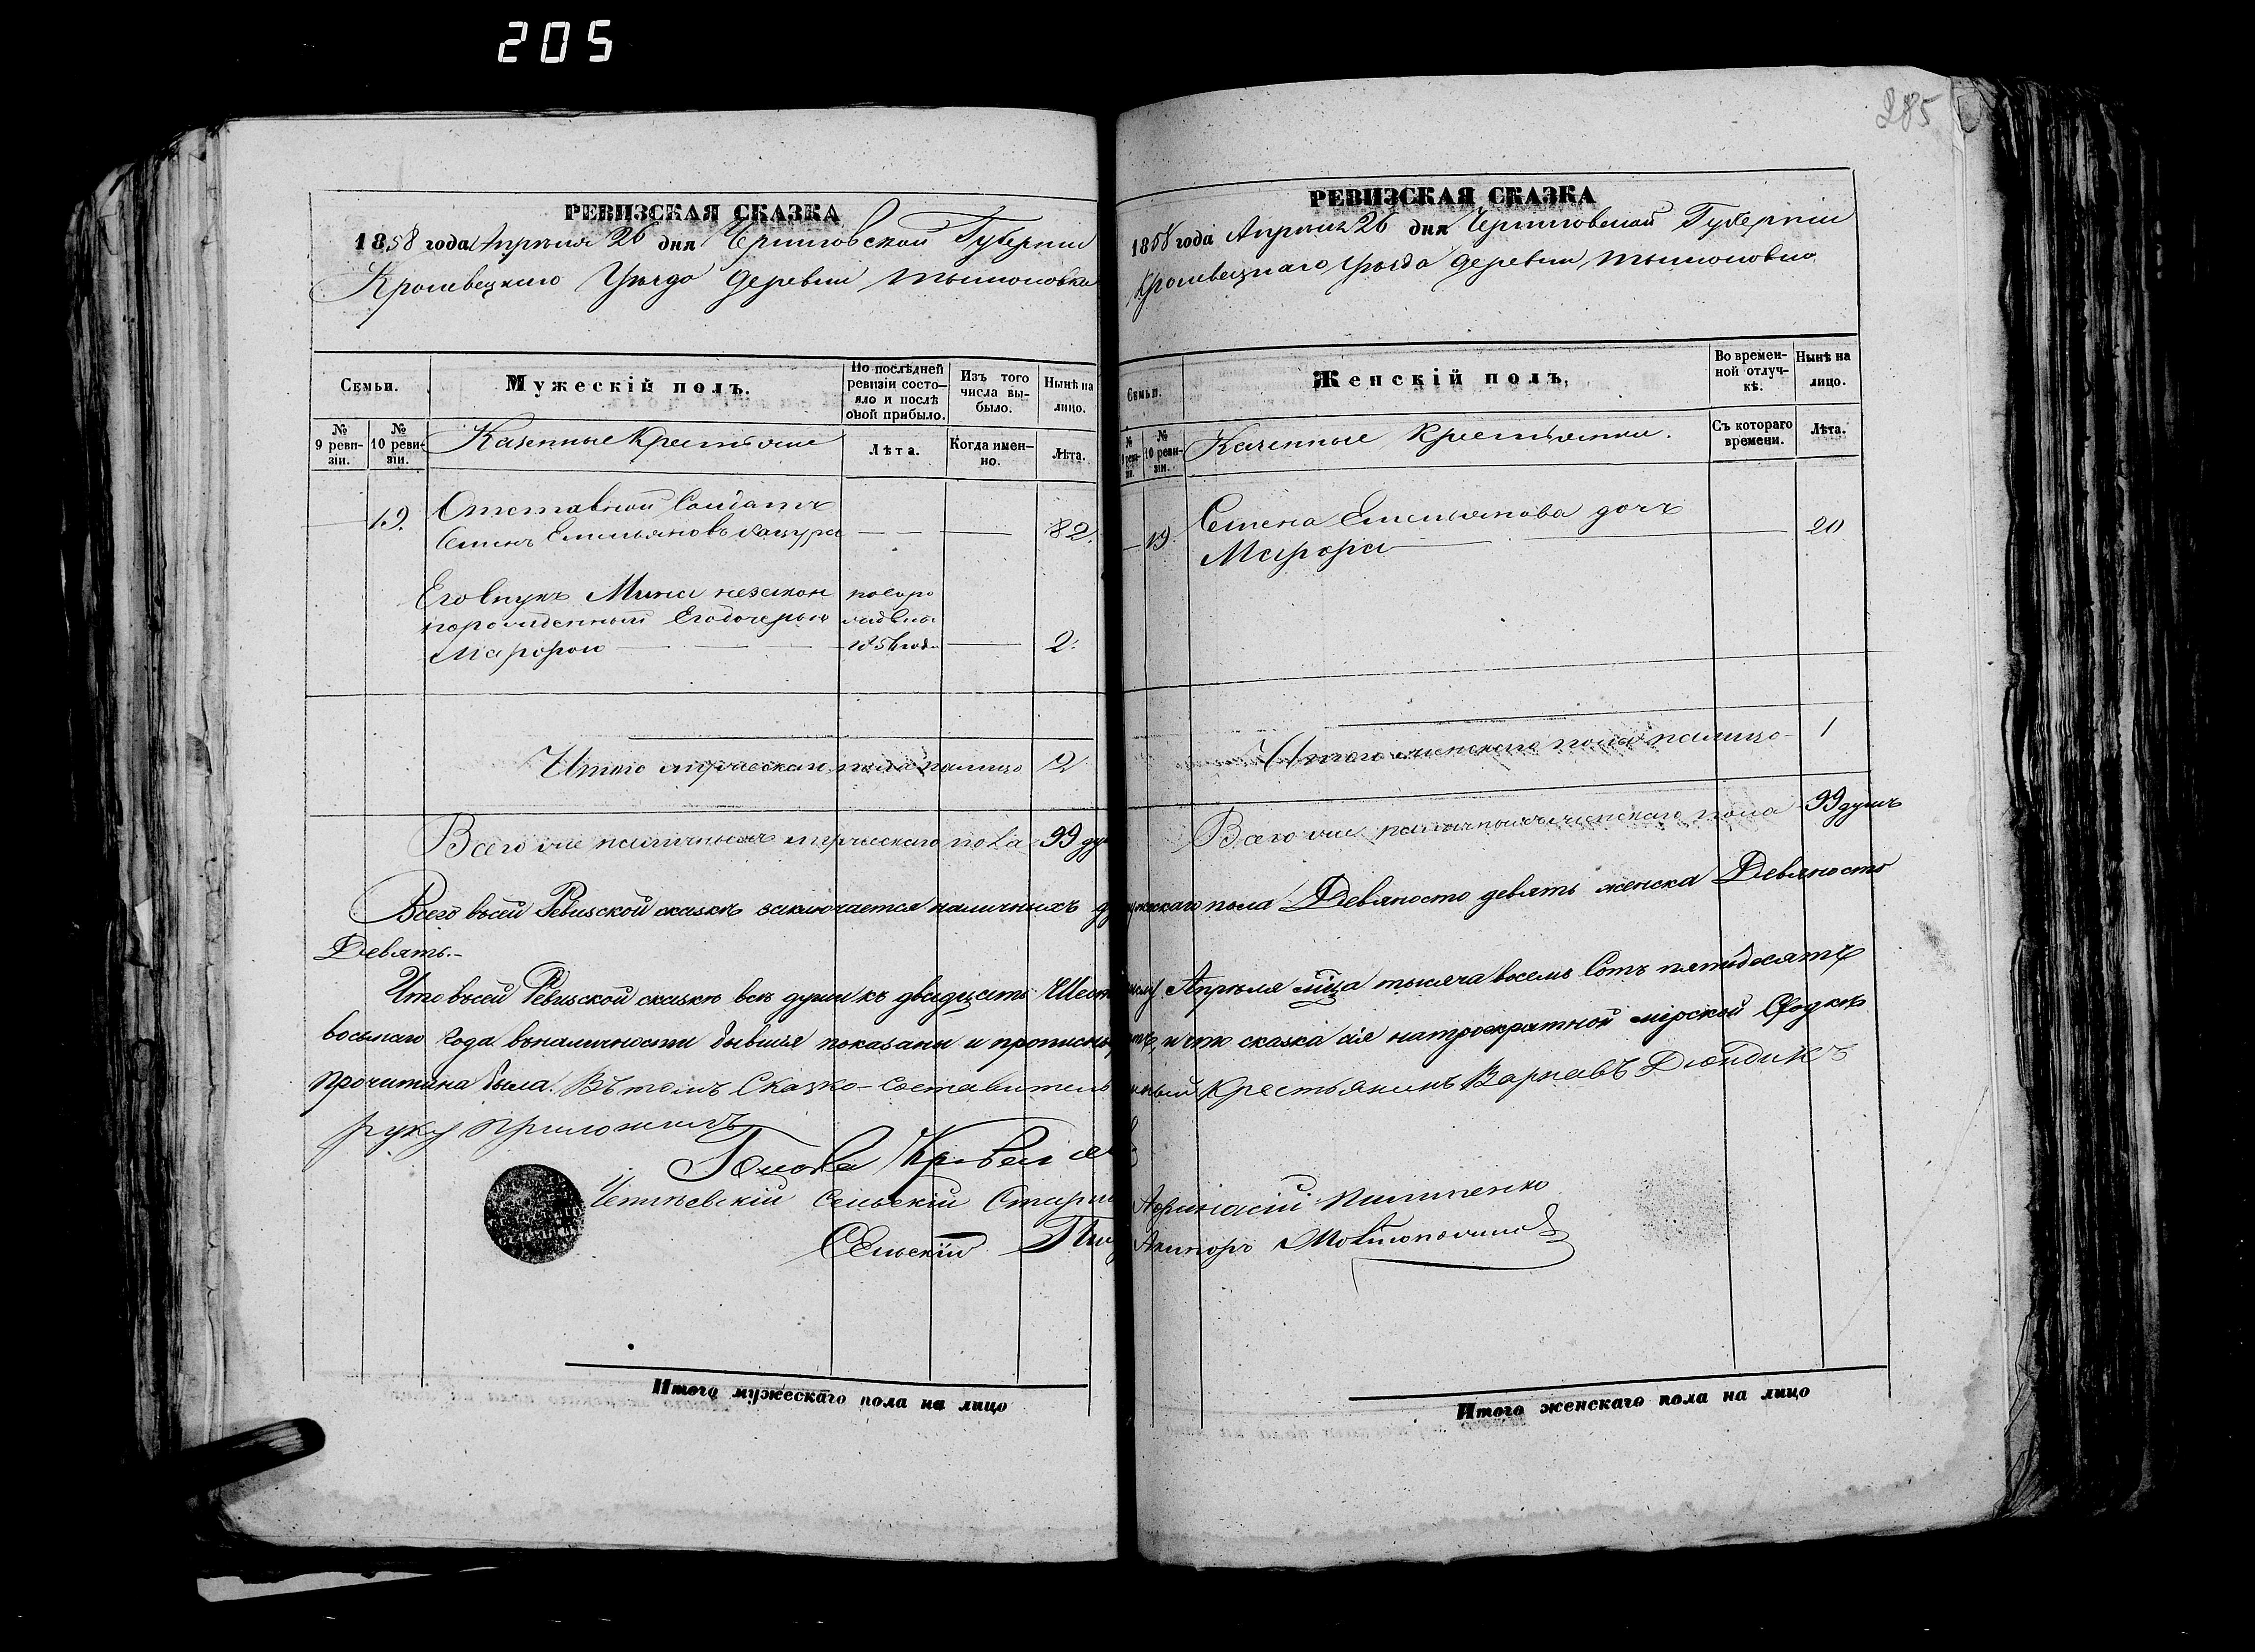 205
285
РЕВИЗСКАЯ СКАЗКА
1858 года Апреля 26 дня Черниговской Губернии
Кролевецкаго Уезда Деревни
Семьи.
Мужескій полъ.
По послѣдней ревизіи состояло и послѣ оной прибыло.
Изъ того числа выбыло.
Нынѣ на лицо.
№ 9 ревизіи.
№ 10 ревизіи.
Казенные Крестьяне
Лѣта.
Когда именно.
Лѣта.
19. Отставной Солдатъ
Семенъ Емельяновъ — — — 82.
Его внукъ Мина незакон
норожденный Его дочерью
Марфою — — — 2.
Итого мужескаго пола налицо 2
Всего же наличныхъ мужескаго пола 99 ду
РЕВИЗСКАЯ СКАЗКА
1858 года Апреля 26 дня Черниговской Губерніи
Кролевецкаго Уезда Деревни
Семьи.
Женскій полъ.
Во временной отлучкѣ.
Нынѣ на лицо.
№ 9 ревизіи.
№ 10 ревизіи.
Казенные Крестьянки.
Съ котораго времени.
Лѣта.
19. Семена Емельянова дочь
Марфа — — 20
Итого женскаго пола налицо 1
Всего же наличныхъ женскаго пола 99 душъ
Всего въ сей Ревизской сказкѣ заключается наличныхъ мужескаго пола Девяносто девять женска Девяносто
Девять.-
Что въ сей Ревизской сказкѣ всѣ души къ двадцать Шестому Апрѣля мца тысяча восемь Сотъ пятьдесятъ
восьмаго Года въ наличности бывшія показаны и и что сказка сія на троекратной мірской Сходкѣ
прочитана была. Въ томъ Сказко-составитель Крестьянинъ
руку приложилъ
Голова
Сельскій Афанасій Пилипенко
Сельскій
Итого мужескаго пола на лицо
Итого женскаго пола на лицо